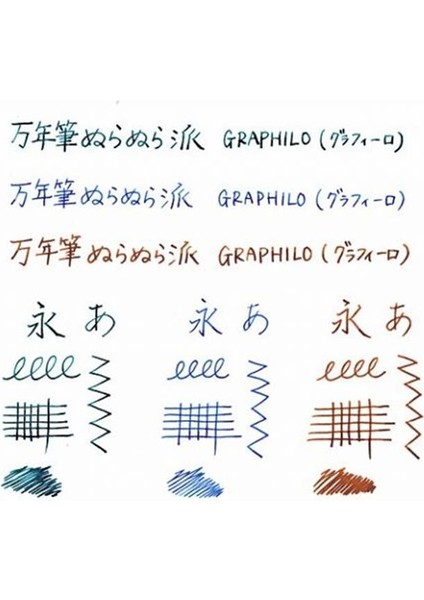 万年筆ぬらぬら派 GRAPHILO (グラフィーロ)
万年筆ぬらぬら派 GRAPHILO (グラフィーロ)
万年筆ぬらぬら派 GRAPHILO (グラフィーロ)
永 あ 永 あ 永 あ